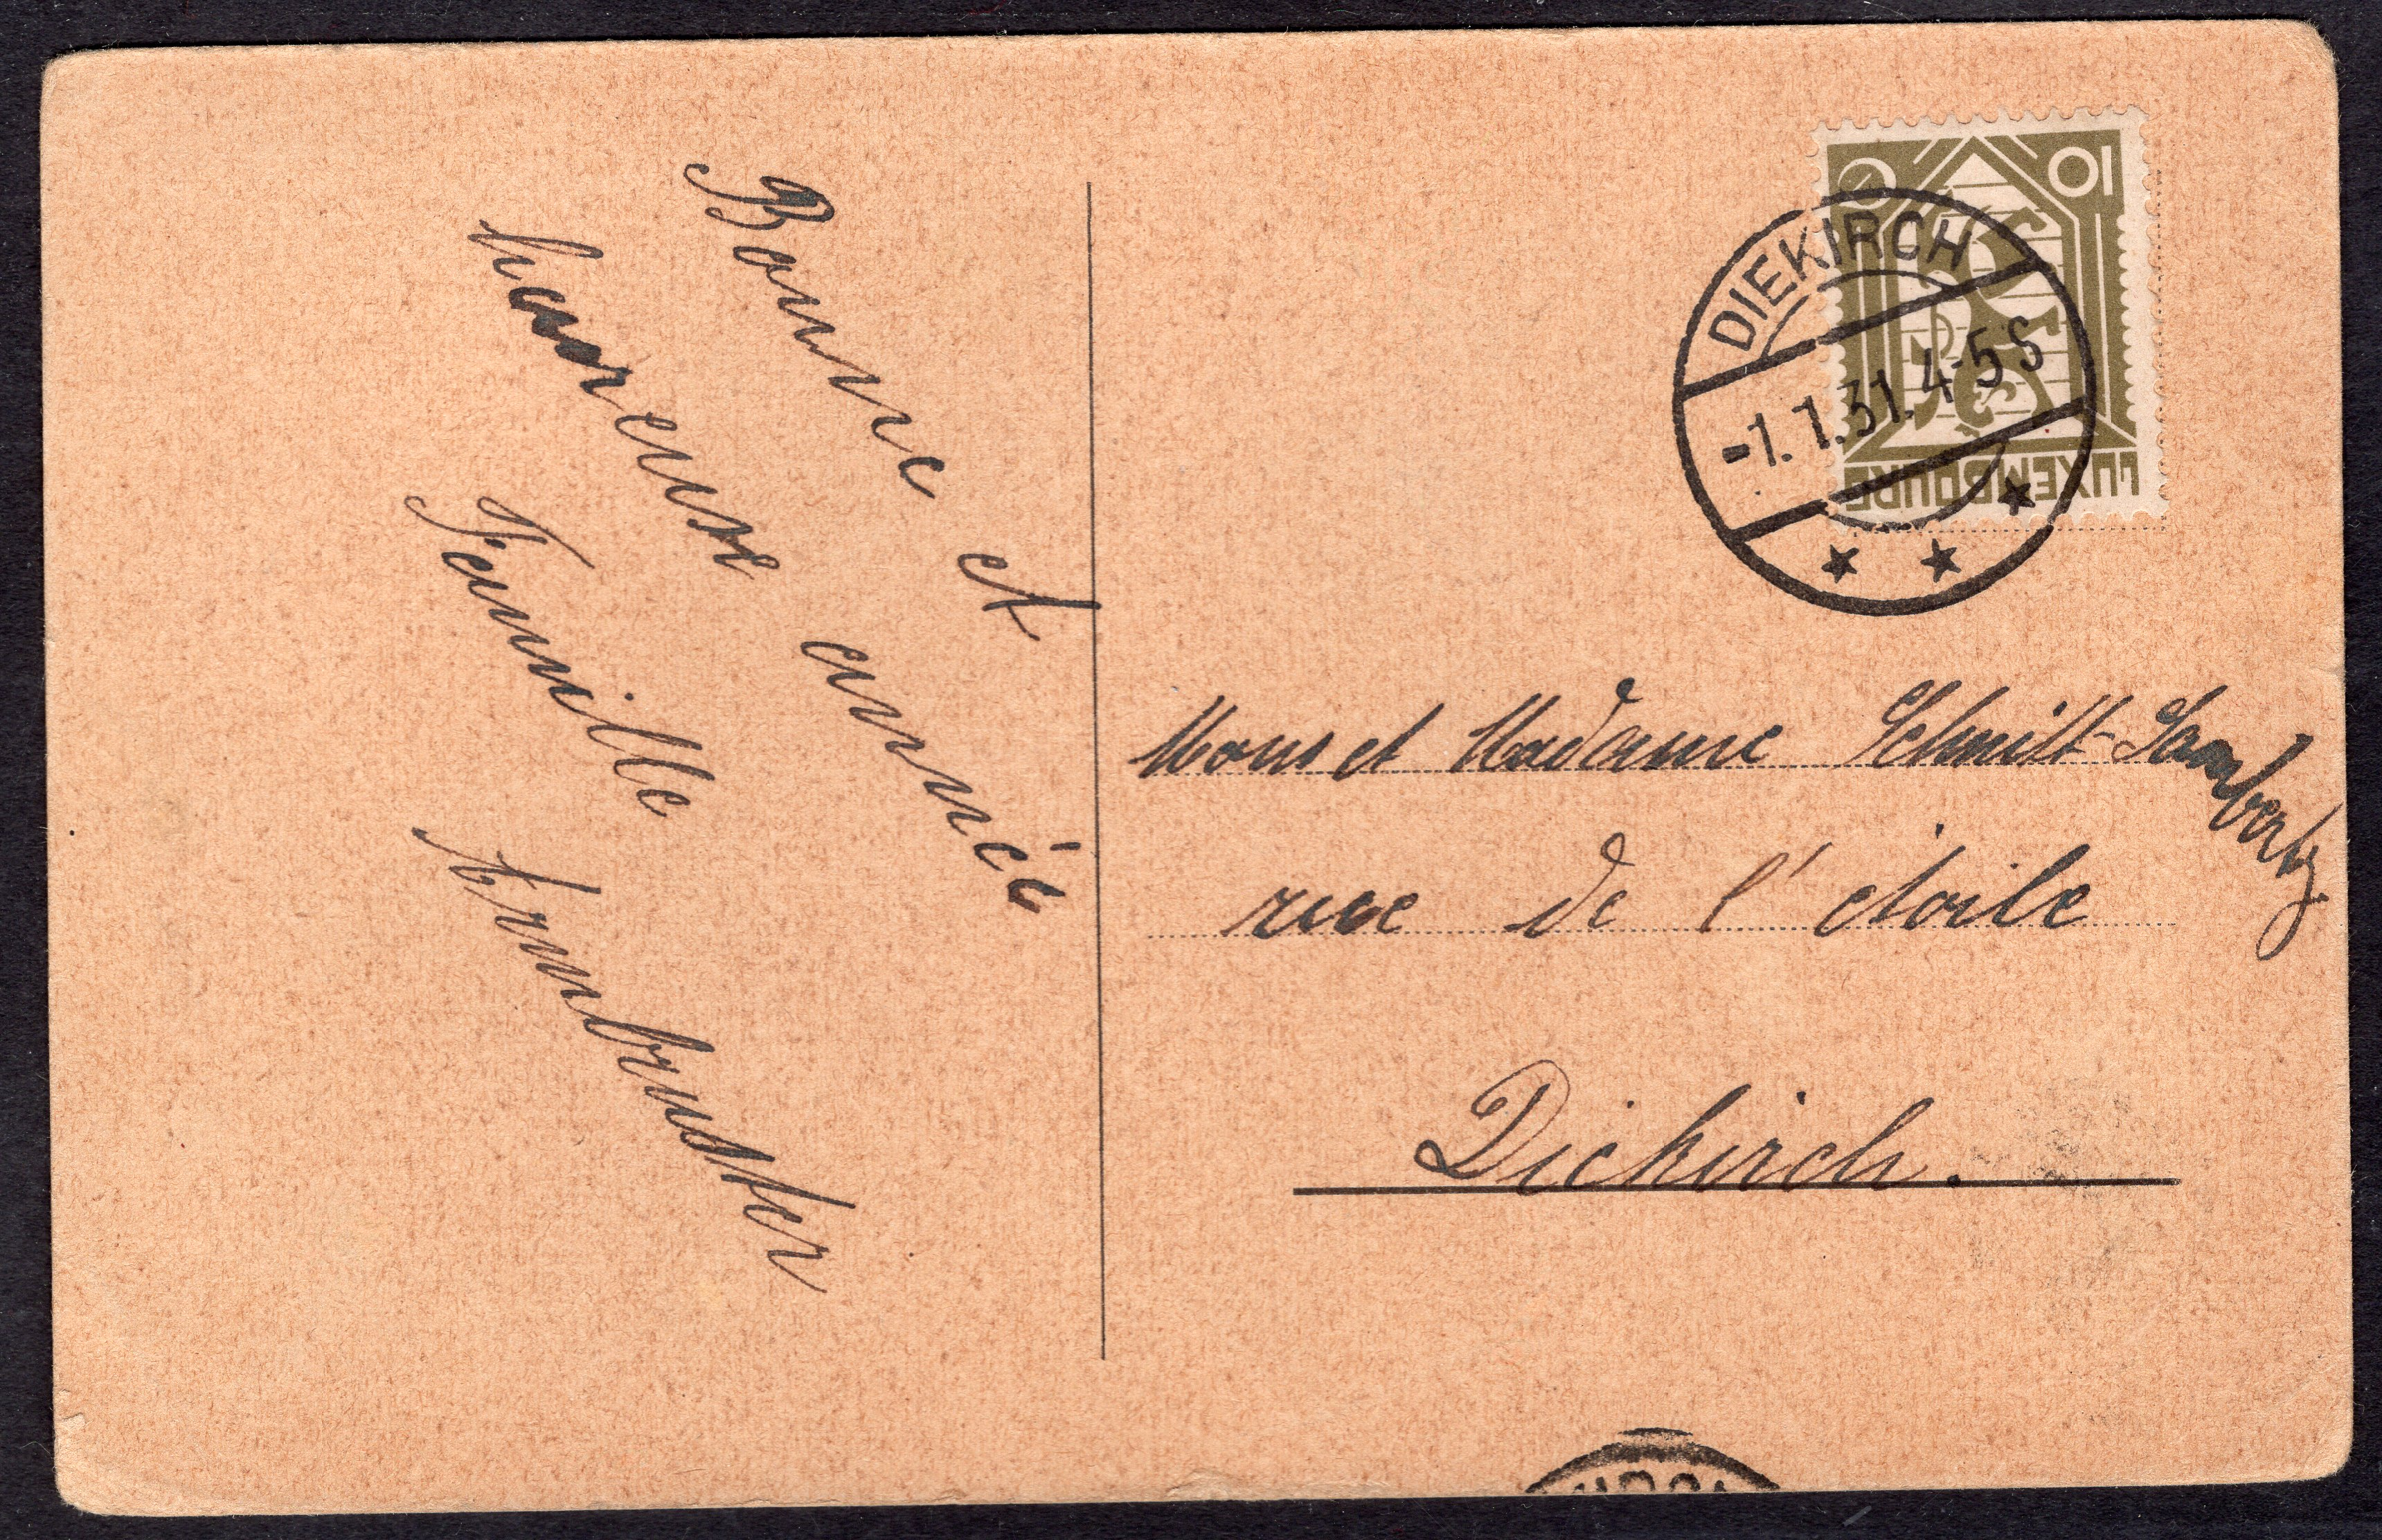 Bonne et
heureuse année
Famille Armbruster
10 C
LUXEMBOURG
DIEKIRCH
-1.1.31.4-5S
Mons et Madame Schmitt-Lambertz
rue de l'étoile
Diekirch.